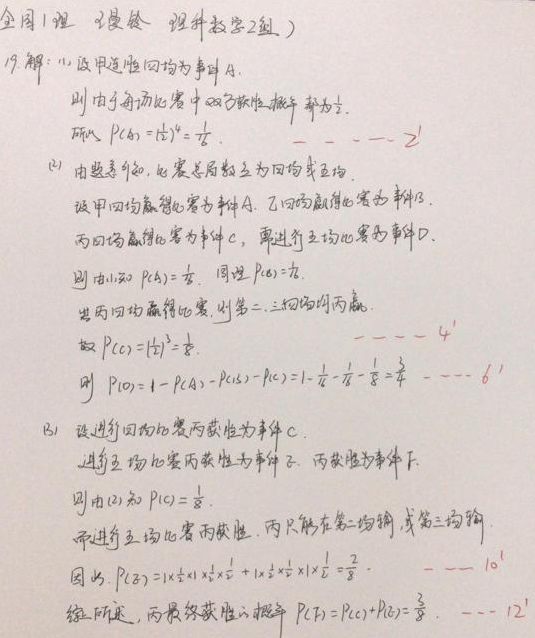 全国1理 理科数学2组)
19.解:(1)设甲连胜四场为事件A.
则由于每场比赛中双方获胜概率都为1/2.
所以 P(A)=(1/2)⁴=1/16. - - - - - 2'
(2) 由题意可知,比赛总局数应为四场或五场.
设甲四场赢得比赛为事件A. 乙四场赢得比赛为事件B.
丙四场赢得比赛为事件C, 需进行五场比赛为事件D.
则由(1)知 P(A)=1/16. 同理P(B)=1/16.
丙四场赢得比赛,则第二.三.四场均丙赢.
故 P(C)=(1/2)³=1/8. - - - - 4'
则 P(D)=1-P(A)-P(B)-P(C)=1-1/16-1/16-1/8=3/4 - - - - 6'
(3) 设进行四场比赛丙获胜为事件C.
进行五场比赛丙获胜为事件E. 丙获胜为事件F.
则由(2)知 P(C)=1/8.
而进行五场比赛丙获胜.丙只能在第二场输,或第三场输
因此.P(E)=1×1/2×1×1/2×1/2+1×1/2×1/2×1×1/2=2/8. - - - 10'
综上所述,丙最终获胜的概率 P(F)=P(C)+P(E)=3/8. - - - 12'